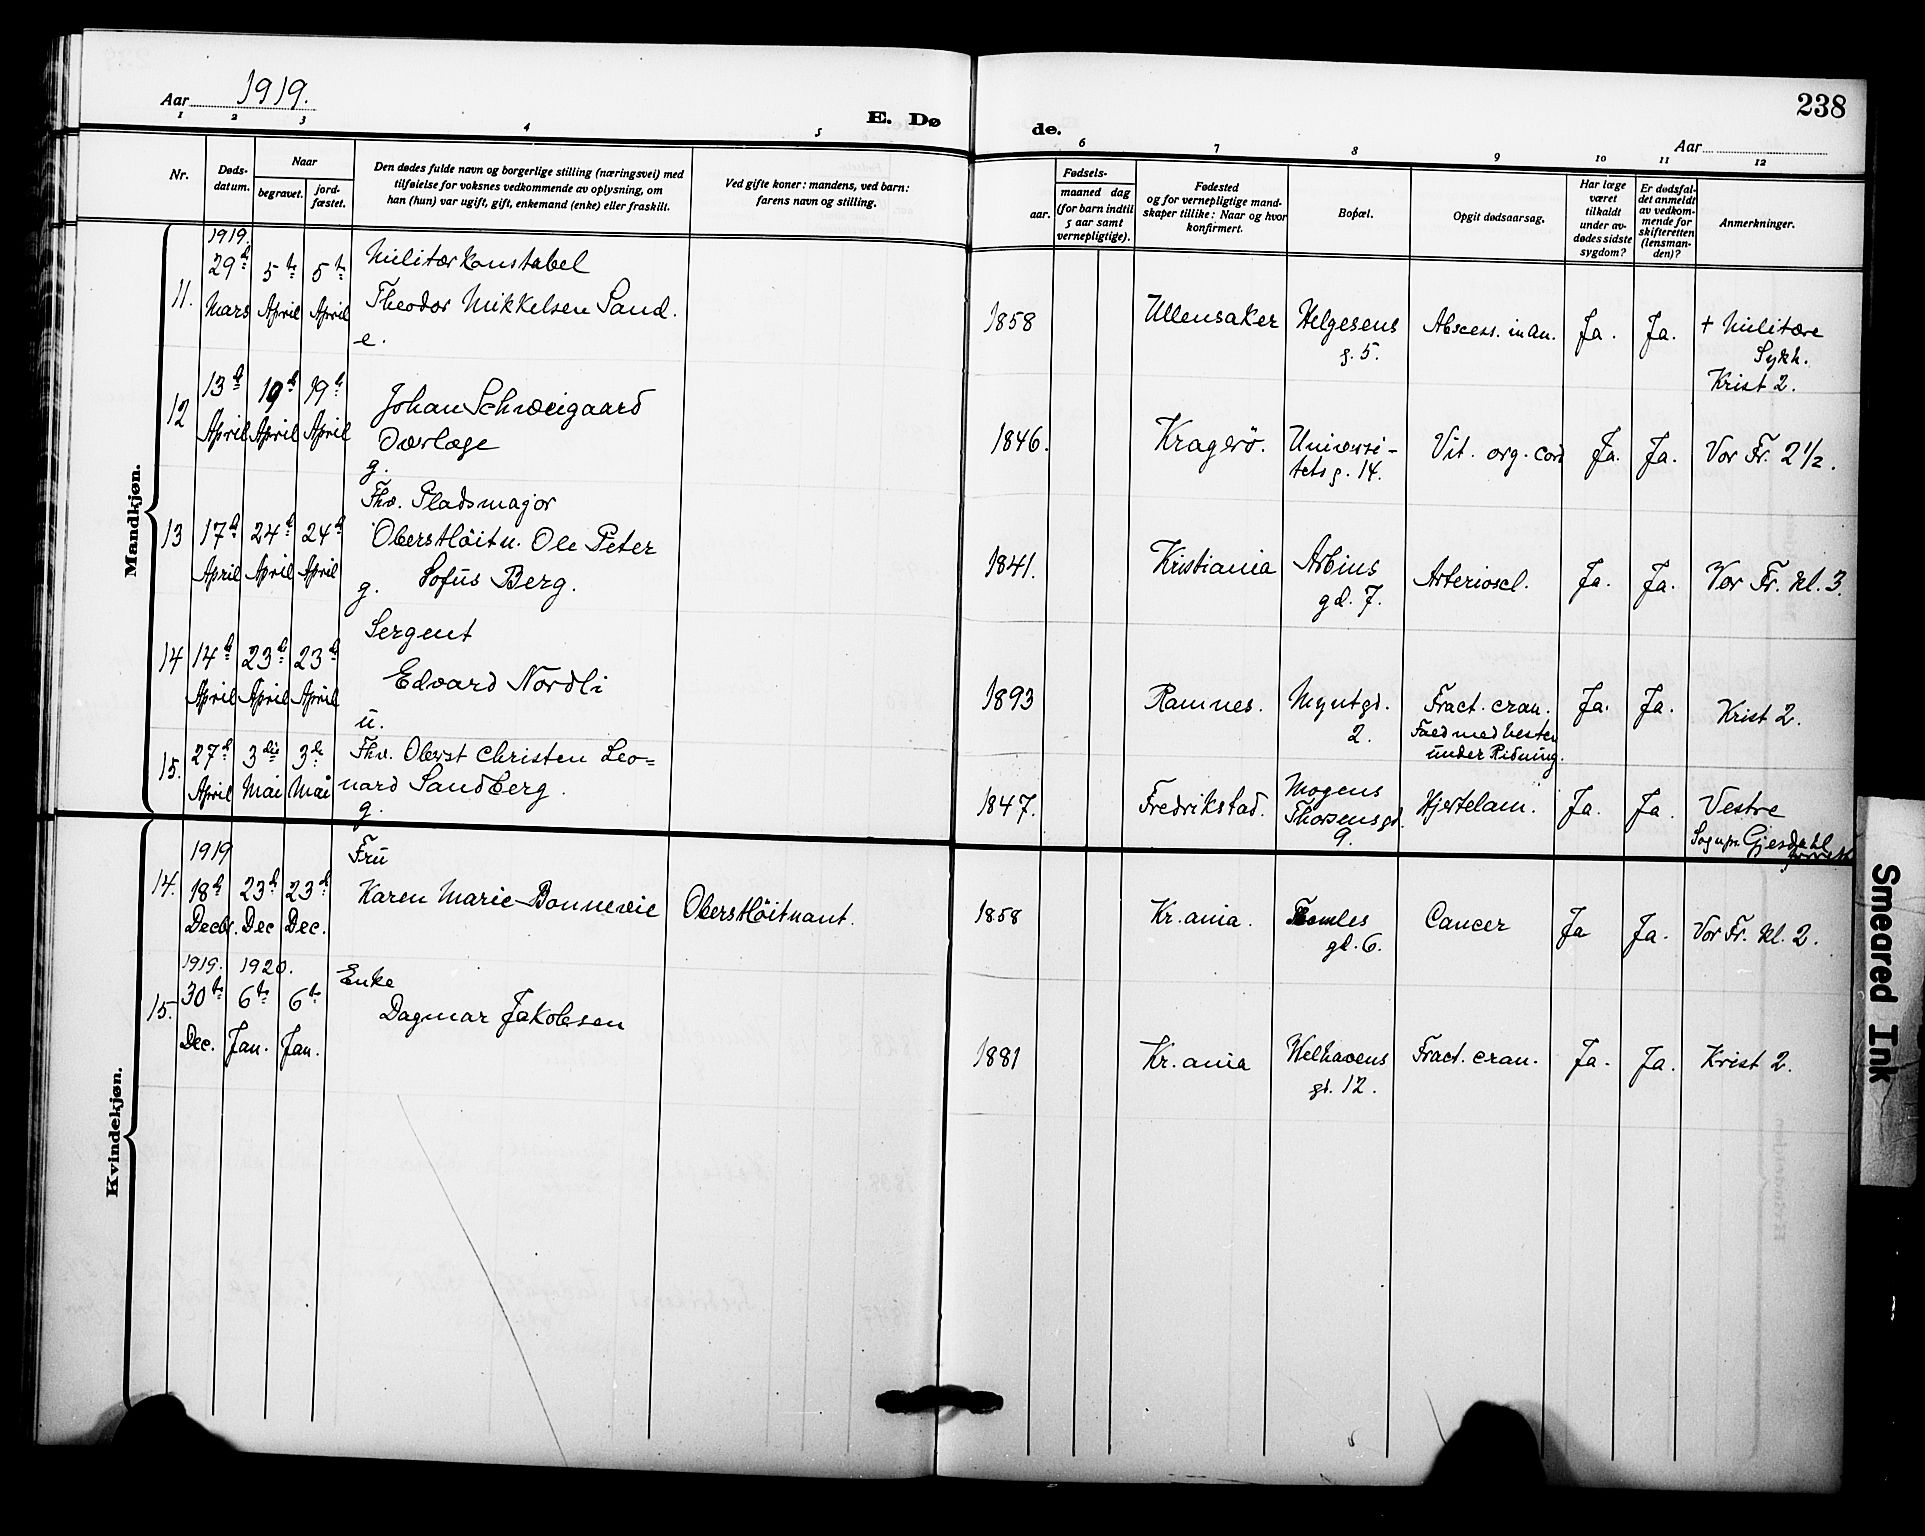 Aar 1919.
E. Dø
de.
238
Aar
1 2 3 4 5 6 7 8 9 10 11 12
Nr.
Døds-
datum.
Naar
begravet.
jord-
fæstet.
Den dødes fulde navn og borgerlige stilling (næringsvei) med
tilføielse for voksnes vedkommende av oplysning, om
han (hun) var ugift, gift, enkemand (enke) eller fraskilt.
Ved gifte koner: mandens, ved barn:
farens navn og stilling.
Fødsels-
aar. maaned dag
(for barn indtil
5 aar samt
vernepligtige).
Fødested
og for vernepligtige mand-
skaper tillike: Naar og hvor
konfirmert.
Bopæl.
Opgit dødsaarsag.
Har læge
været
tilkaldt
under av-
dødes sidste
sygdom?
Er dødsfal-
det anmeldt
av vedkom-
mende for
skifteretten
(lensman-
den)?
Anmerkninger.
Mandkjøn.
1919.
11. 29d Mars 5te April 5te April
Militærkonstabel
Theodor Mikkelsen Sand.
e.
1858 Ullensaker Helgesens
g. 5.
Abscess. in an. Ja. Ja. + Militære
Sykh.
Krist 2.
12 13d April 19d April 19d April
Johan Schweigaard
Overlæge
g.
1846. Kragerø. Universi-
tetsg. 14.
Vit. org. cord Ja. Ja. Vor Fr. 2 1/2.
13 17d April 24d April 24d April
Fhv. Pladsmajor
Oberstløitn. Ole Peter
g. Sofus Berg.
1841. Kristiania Arbins
gd. 7.
Arterioscl. Ja. Ja. Vor Fr. Kl. 3.
14 14d April 23d April 23d April
Sergent
Edvard Nordli
u.
1893 Ramnes. Myntgd.
2.
Fract. cran.
Faed med hesten
under Ridning.
Ja. Ja. Krist 2.
15. 27d April 3die Mai 3die Mai
Fhv. Oberst Christen Leo=
nard Sandberg.
g.
1847. Fredrikstad. Mogens
Thorsensgd.
9.
Hjertelam. Ja. Ja. Vestre
Sognpr. Gjesdahl
Kvindekjøn.
1919
14. 18d Decbr. 23d Dec 23d Dec.
Fru
Karen Marie Bonnevie Oberstløitnant.
1858 Kr.ania.
gd. 6.
Cancer Ja Ja. Vor Fr. Kl. 2.
1919. 1920.
15. 30te Dec. 6te Jan. 6te Jan.
Enke
Dagmar Jakobsen
1881 Kr.ania Welhavens
gd. 12.
Fract. cran. Ja. Ja. Krist 2.
Smeared Ink